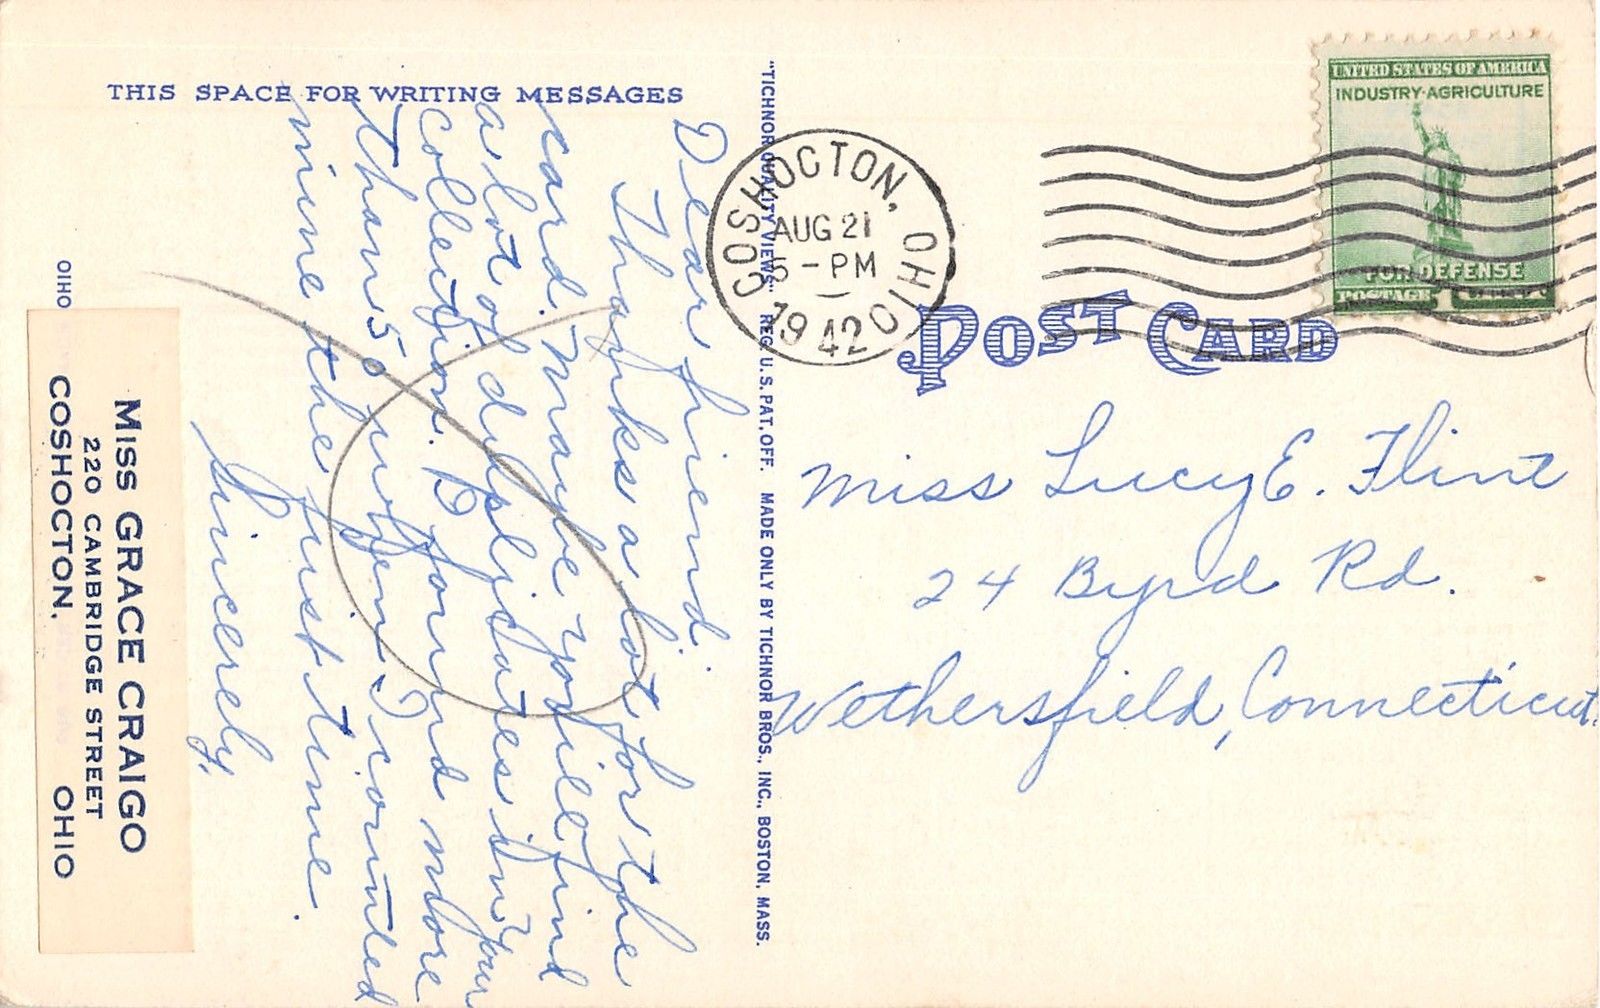 THIS SPACE FOR WRITING MESSAGES
Dear friend:
Thanks a lot for the
card. Maybe you'll find
a lot of duplicates in your
collection. I found more
than 50 when I counted
mine the first time.
Sincerely,
MISS GRACE CRAIGO
220 CAMBRIDGE STREET
COSHOCTON, OHIO
OHIO
"TICHNOR QUALITY VIEWS" REG. U. S. PAT. OFF. MADE ONLY BY TICHNOR BROS., INC., BOSTON, MASS.
COSHOCTON, OHIO
AUG 21
5-PM
1942
UNITED STATES OF AMERICA
INDUSTRY·AGRICULTURE
FOR DEFENSE
POSTAGE 1
POST CARD
Miss Lucy E. Flint
24 Byrd Rd.
Wethersfield, Connecticut.